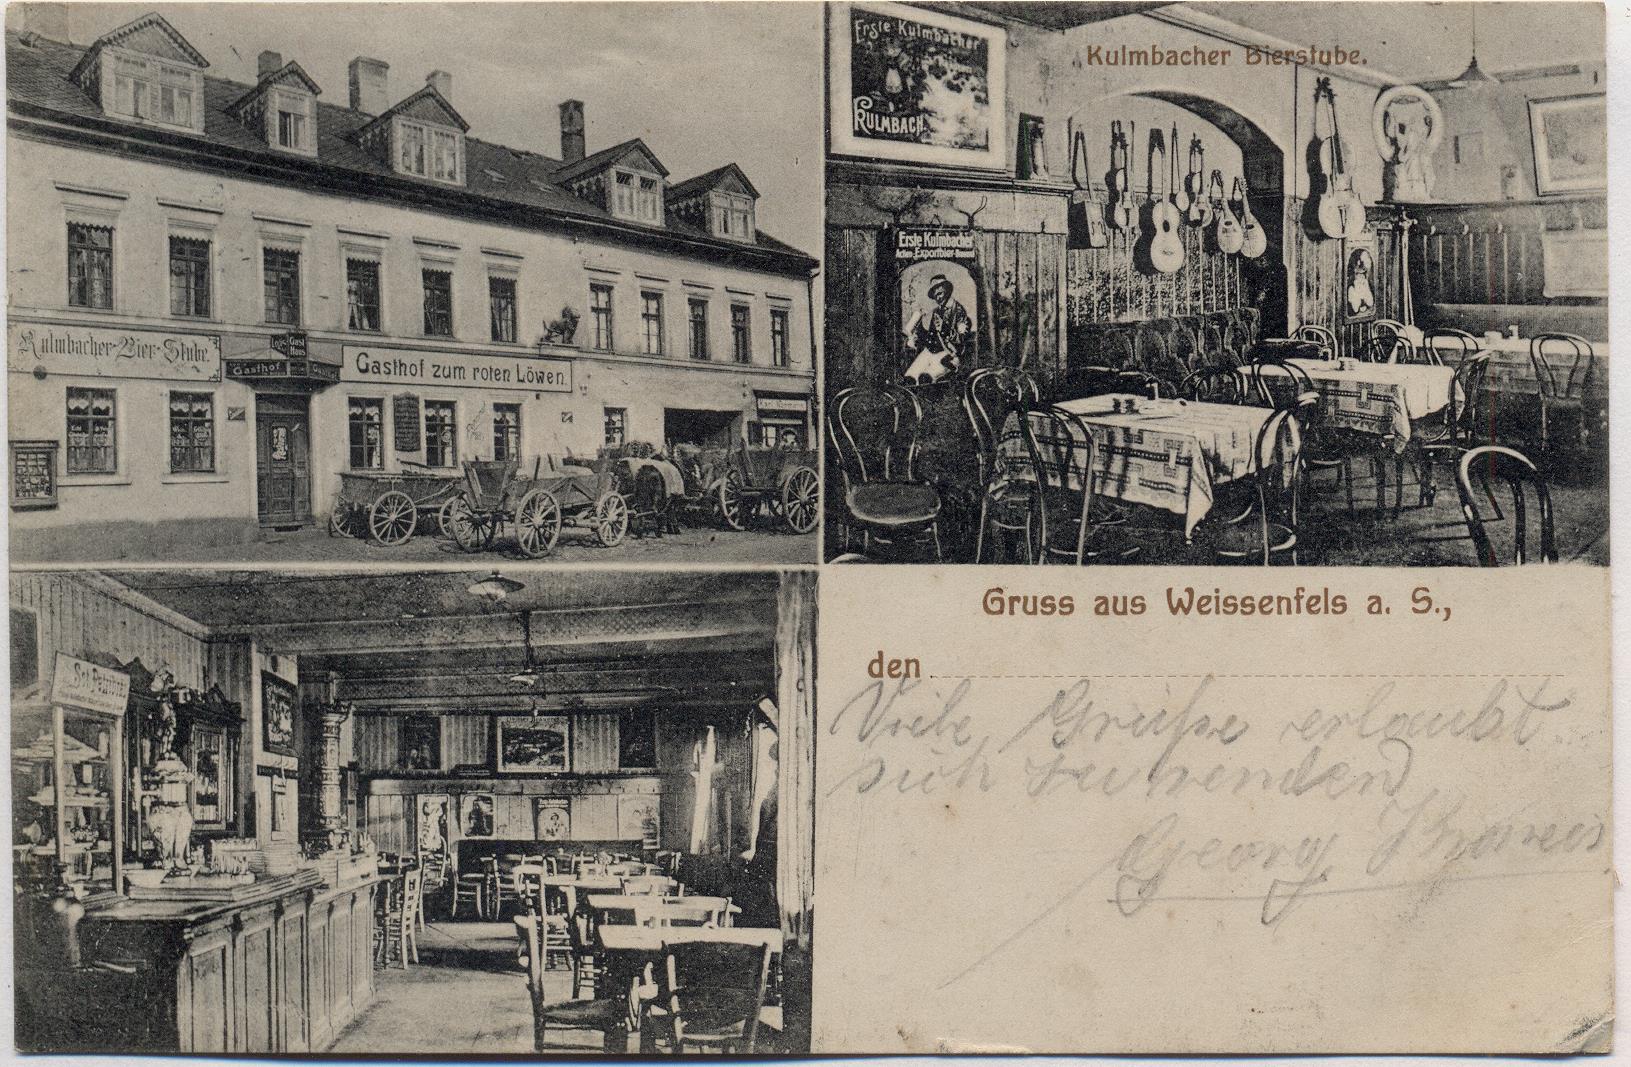 Kulmbacher-Bier-Stube.
Logir Gast
Haus
Gasthof
Gasthof zum roten Löwen.
Erste Kulmbacher
KULMBACH
Kulmbacher Bierstube.
Erste Kulmbacher
Actien-Exportbier-Brauerei
Gruss aus Weissenfels a. S.,
den
Viele Grüße erlaubt
sich zu senden
Georg